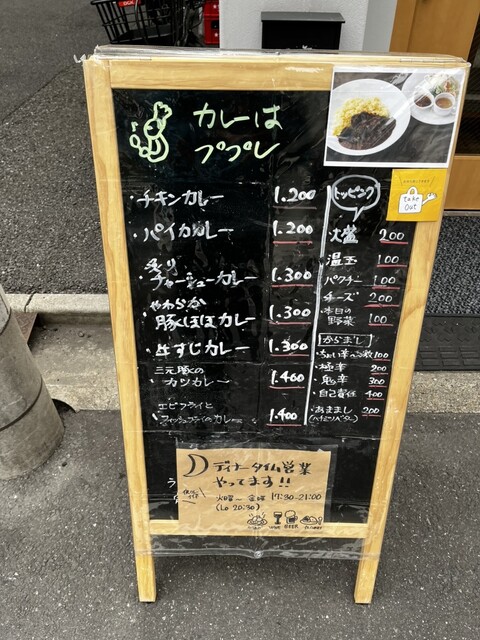 カレーは
ププレ
・チキンカレー 1.200
・パイカカレー 1.200
・炙り
チャーシューカレー 1.300
・やわらか
豚ほほカレー 1.300
・牛すじカレー 1.300
・三元豚の
カツカレー 1.400
・エビフライと
フィッシュフライのカレー 1.400
トッピング
大盛 200
温玉 100
パクチー 100
チーズ 200
本日の
野菜 100
からまし
ちょい辛 100
極辛 200
鬼辛 300
自己責任 400
あままし 200
take
out
ディナータイム営業
やってます!!
火曜〜金曜 17:30-21:00
(Lo 20:30)
WINE BEER